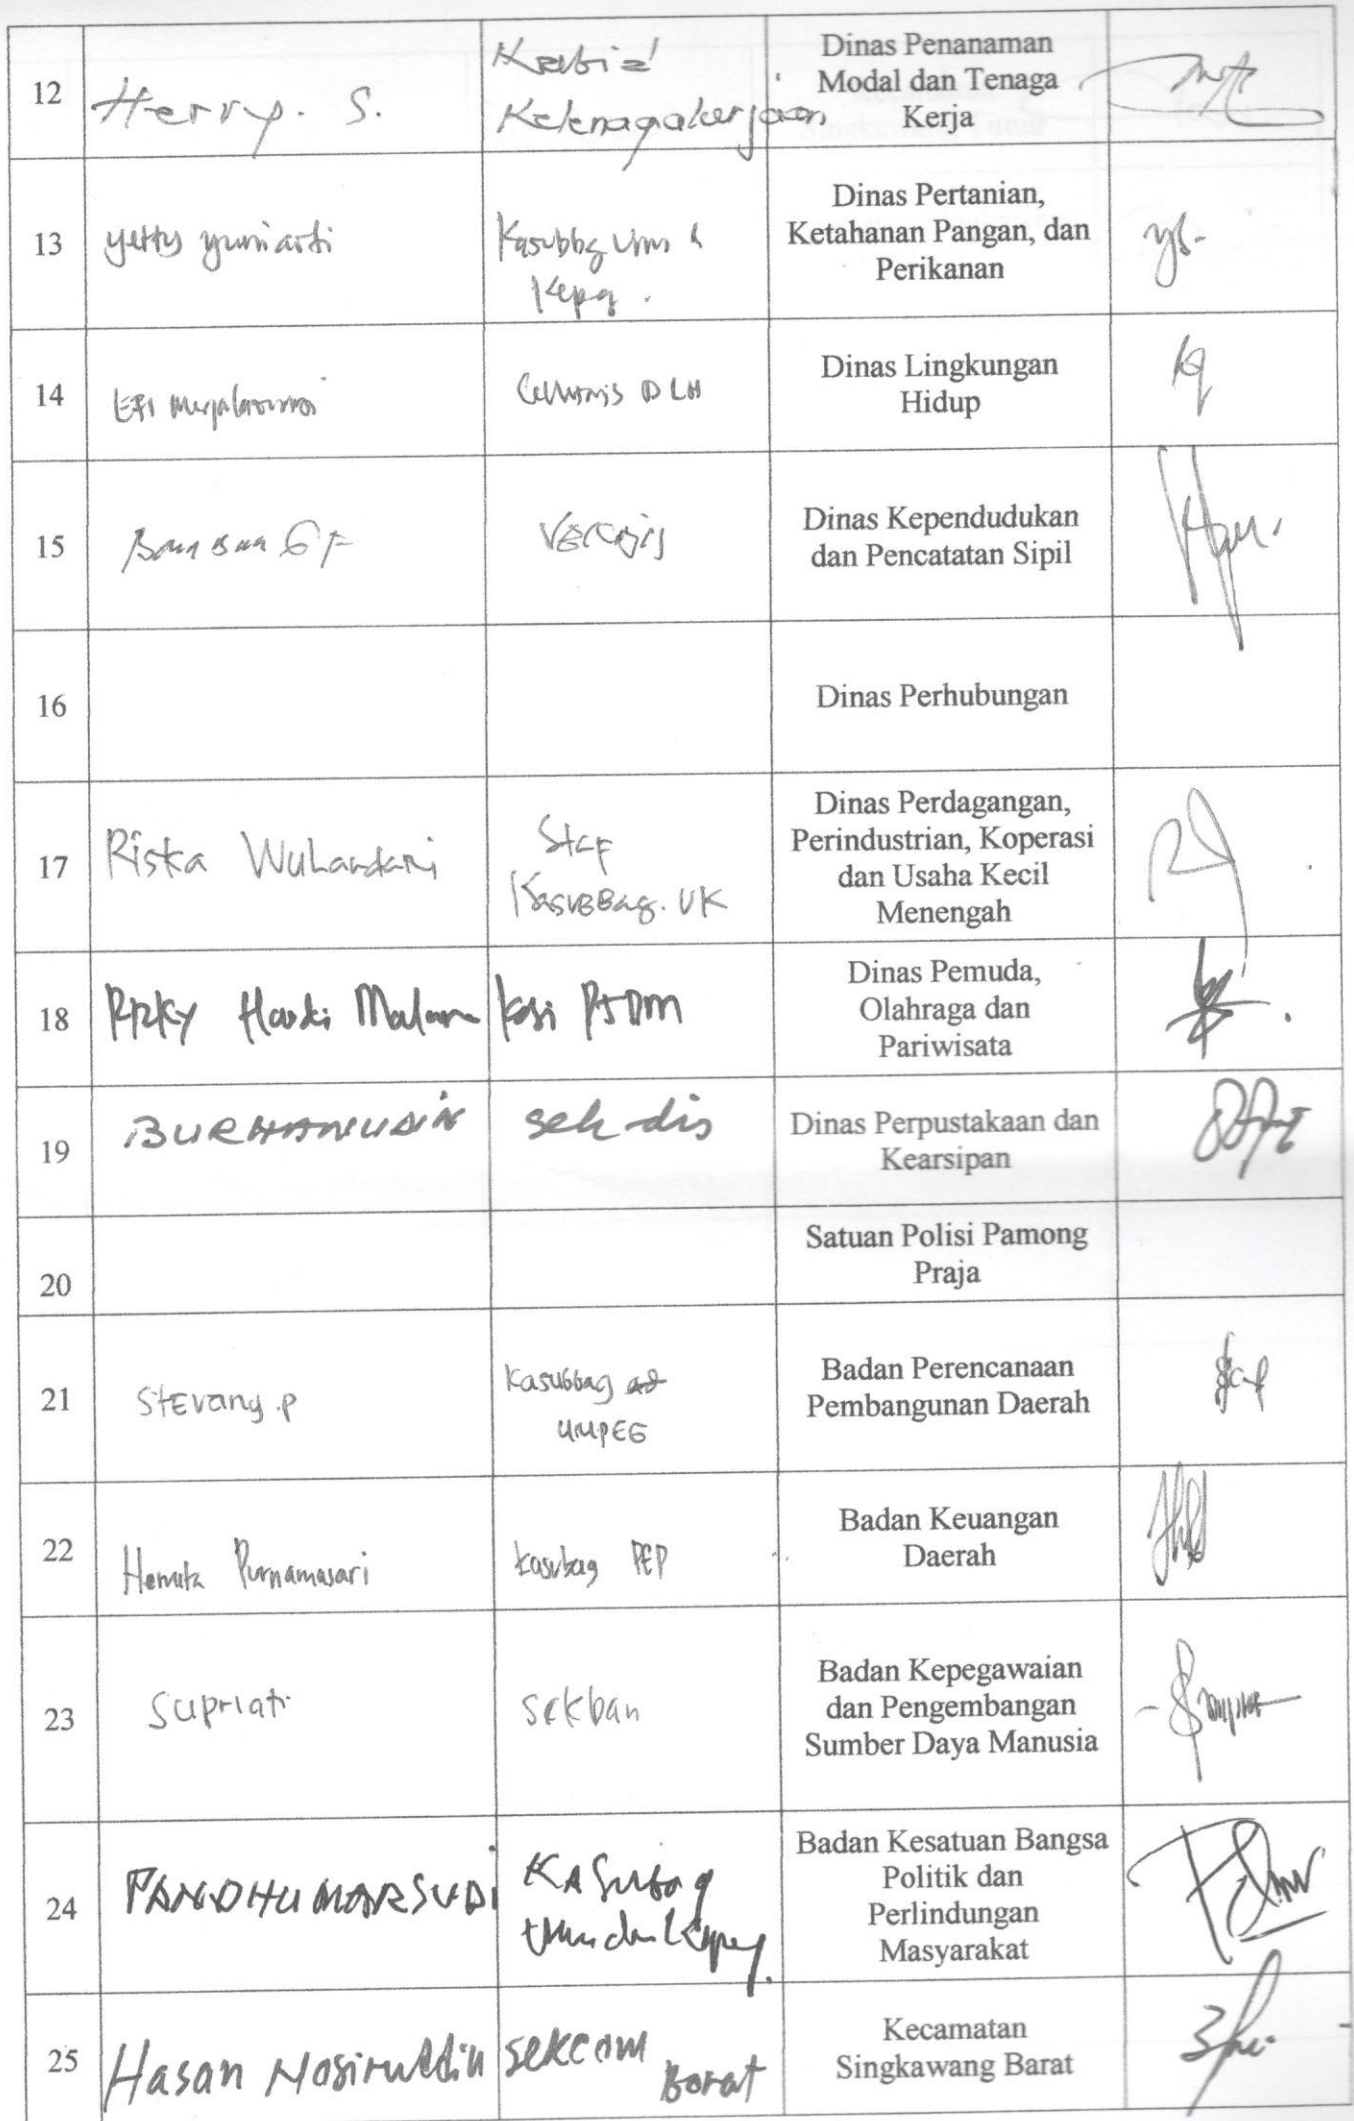 12
Herry. S.
Kabid
Ketenagakerjaan
Dinas Penanaman
Modal dan Tenaga
Kerja
13
yetty yuniarti
Kasubbg Um &
Kepg.
Dinas Pertanian,
Ketahanan Pangan, dan
Perikanan
14
Efi
DLH
Dinas Lingkungan
Hidup
15
Dinas Kependudukan
dan Pencatatan Sipil
16
Dinas Perhubungan
17
Riska Wulandari
Staf
Kasubbag. UK
Dinas Perdagangan,
Perindustrian, Koperasi
dan Usaha Kecil
Menengah
18
Rizky Hardi Maulana
kasi PSDM
Dinas Pemuda,
Olahraga dan
Pariwisata
19
BURHANUDIN
sekdis
Dinas Perpustakaan dan
Kearsipan
20
Satuan Polisi Pamong
Praja
21
STEvany.p
Kasubbag
UMPEG
Badan Perencanaan
Pembangunan Daerah
22
Purnamasari
kasubag PEP
Badan Keuangan
Daerah
23
Supriati
Sekban
Badan Kepegawaian
dan Pengembangan
Sumber Daya Manusia
24
PANDHU MARSUDI
KASubag
Umum dan Kepeg.
Badan Kesatuan Bangsa
Politik dan
Perlindungan
Masyarakat
25
Hasan Nasiruddin
sekcam
Barat
Kecamatan
Singkawang Barat